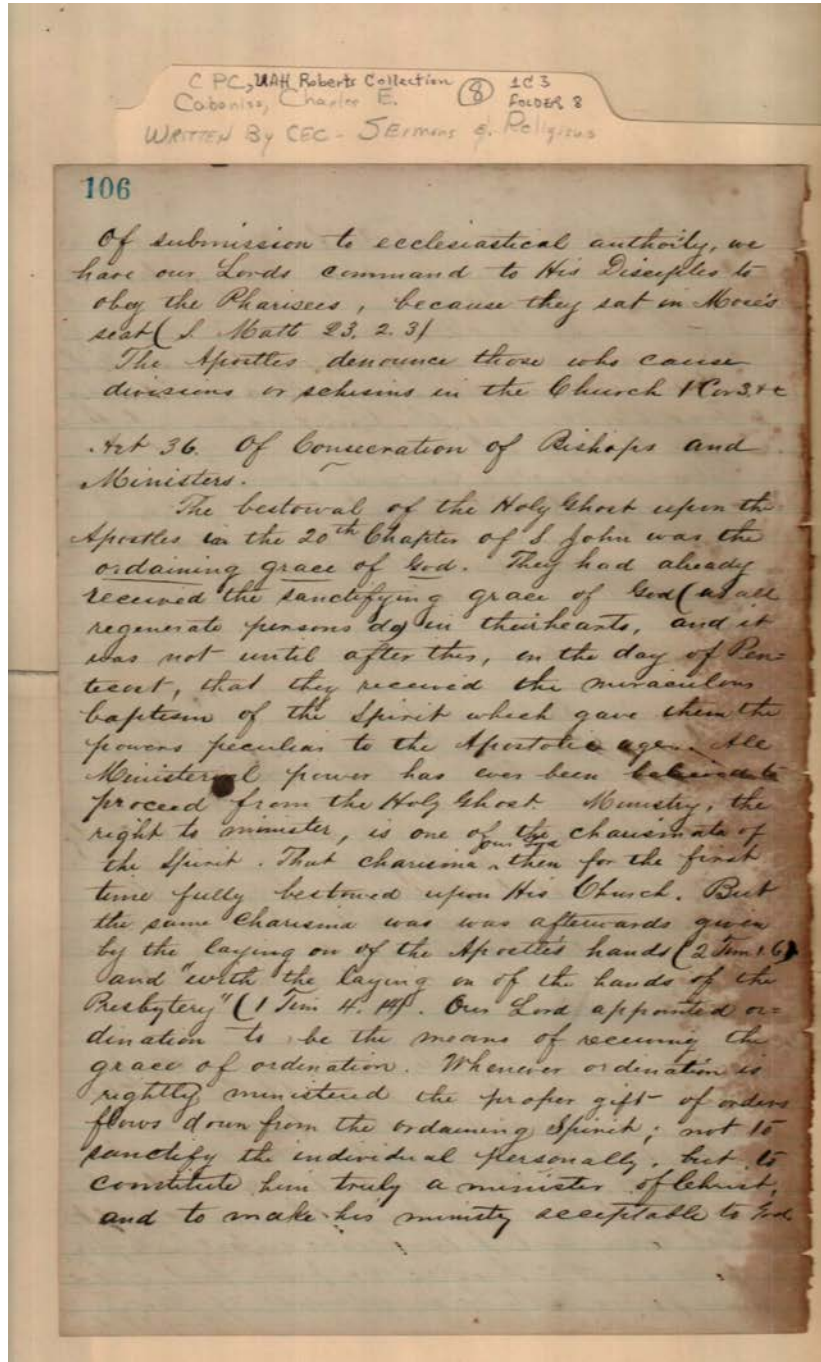 C PC, UAH Roberts Collection (8) 1C3
Cabaniss, Charles E. FOLDER 8
WRITTEN By CEC - SErmons & Religious
106
Of submission to ecclesiastical authority, we
have our Lords command to His Disciples to
obey the Pharisees, because they sat in Mose's
seat (S. Matt 23. 2. 3)
The Apostles denounce those who cause
divisions or schisms in the Church 1 Cor 3. &c
Art 36. Of Consecration of Bishops and
Ministers.
The bestowal of the Holy Ghost upon the
Apostles in the 20th Chapter of S. John was the
ordaining grace of God. They had already
received the sanctifying grace of God (as all
regenerate persons do) in their hearts, and it
was not until after this, on the day of Pen=
tecost, that they received the miraculous
baptism of the Spirit which gave them the
powers peculiar to the Apostolic age. All
Ministerial power has ever been believed to
proceed from the Holy Ghost. Ministry, the
right to minister, is one of the charismata of
the Spirit. That charisma our Lord then for the first
time fully bestowed upon His Church. But
the same Charisma was was afterwards given
by the laying on of the Apostles hands (2 Tim 1. 6)
and "with the laying on of the hands of the
Presbytery" (1 Tim 4. 14). Our Lord appointed or=
dination to be the means of receiving the
grace of ordination. Whenever ordination is
rightly ministered the proper gift of orders
flows down from the ordaining Spirit; not to
sanctify the individual personally, but to
constitute him truly a minister of Christ,
and to make his ministry acceptable to God